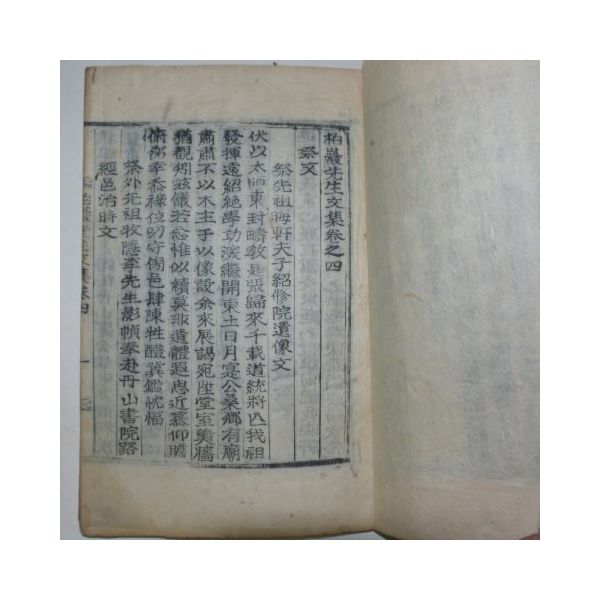 柏巖先生文集卷之四
祭文
祭先祖晦軒夫子紹修院遺像文
伏以太師東封疇敎是張歸來千載道統將亾我祖
發揮遠紹絶學功深繼開東土日月寔公桑鄕有廟
肅肅不以木主于以像設余來展謁宛陞堂室羹墻
猶覩矧玆儼若念惟似續莫非遺體遐思近慕仰瞻
俯 忝祿位叨守 邑肆陳牲醴冀鑑忱愊
祭外先祖牧隱李先生影幀奉赴丹山書院路
經邑治時文
文集卷四
一